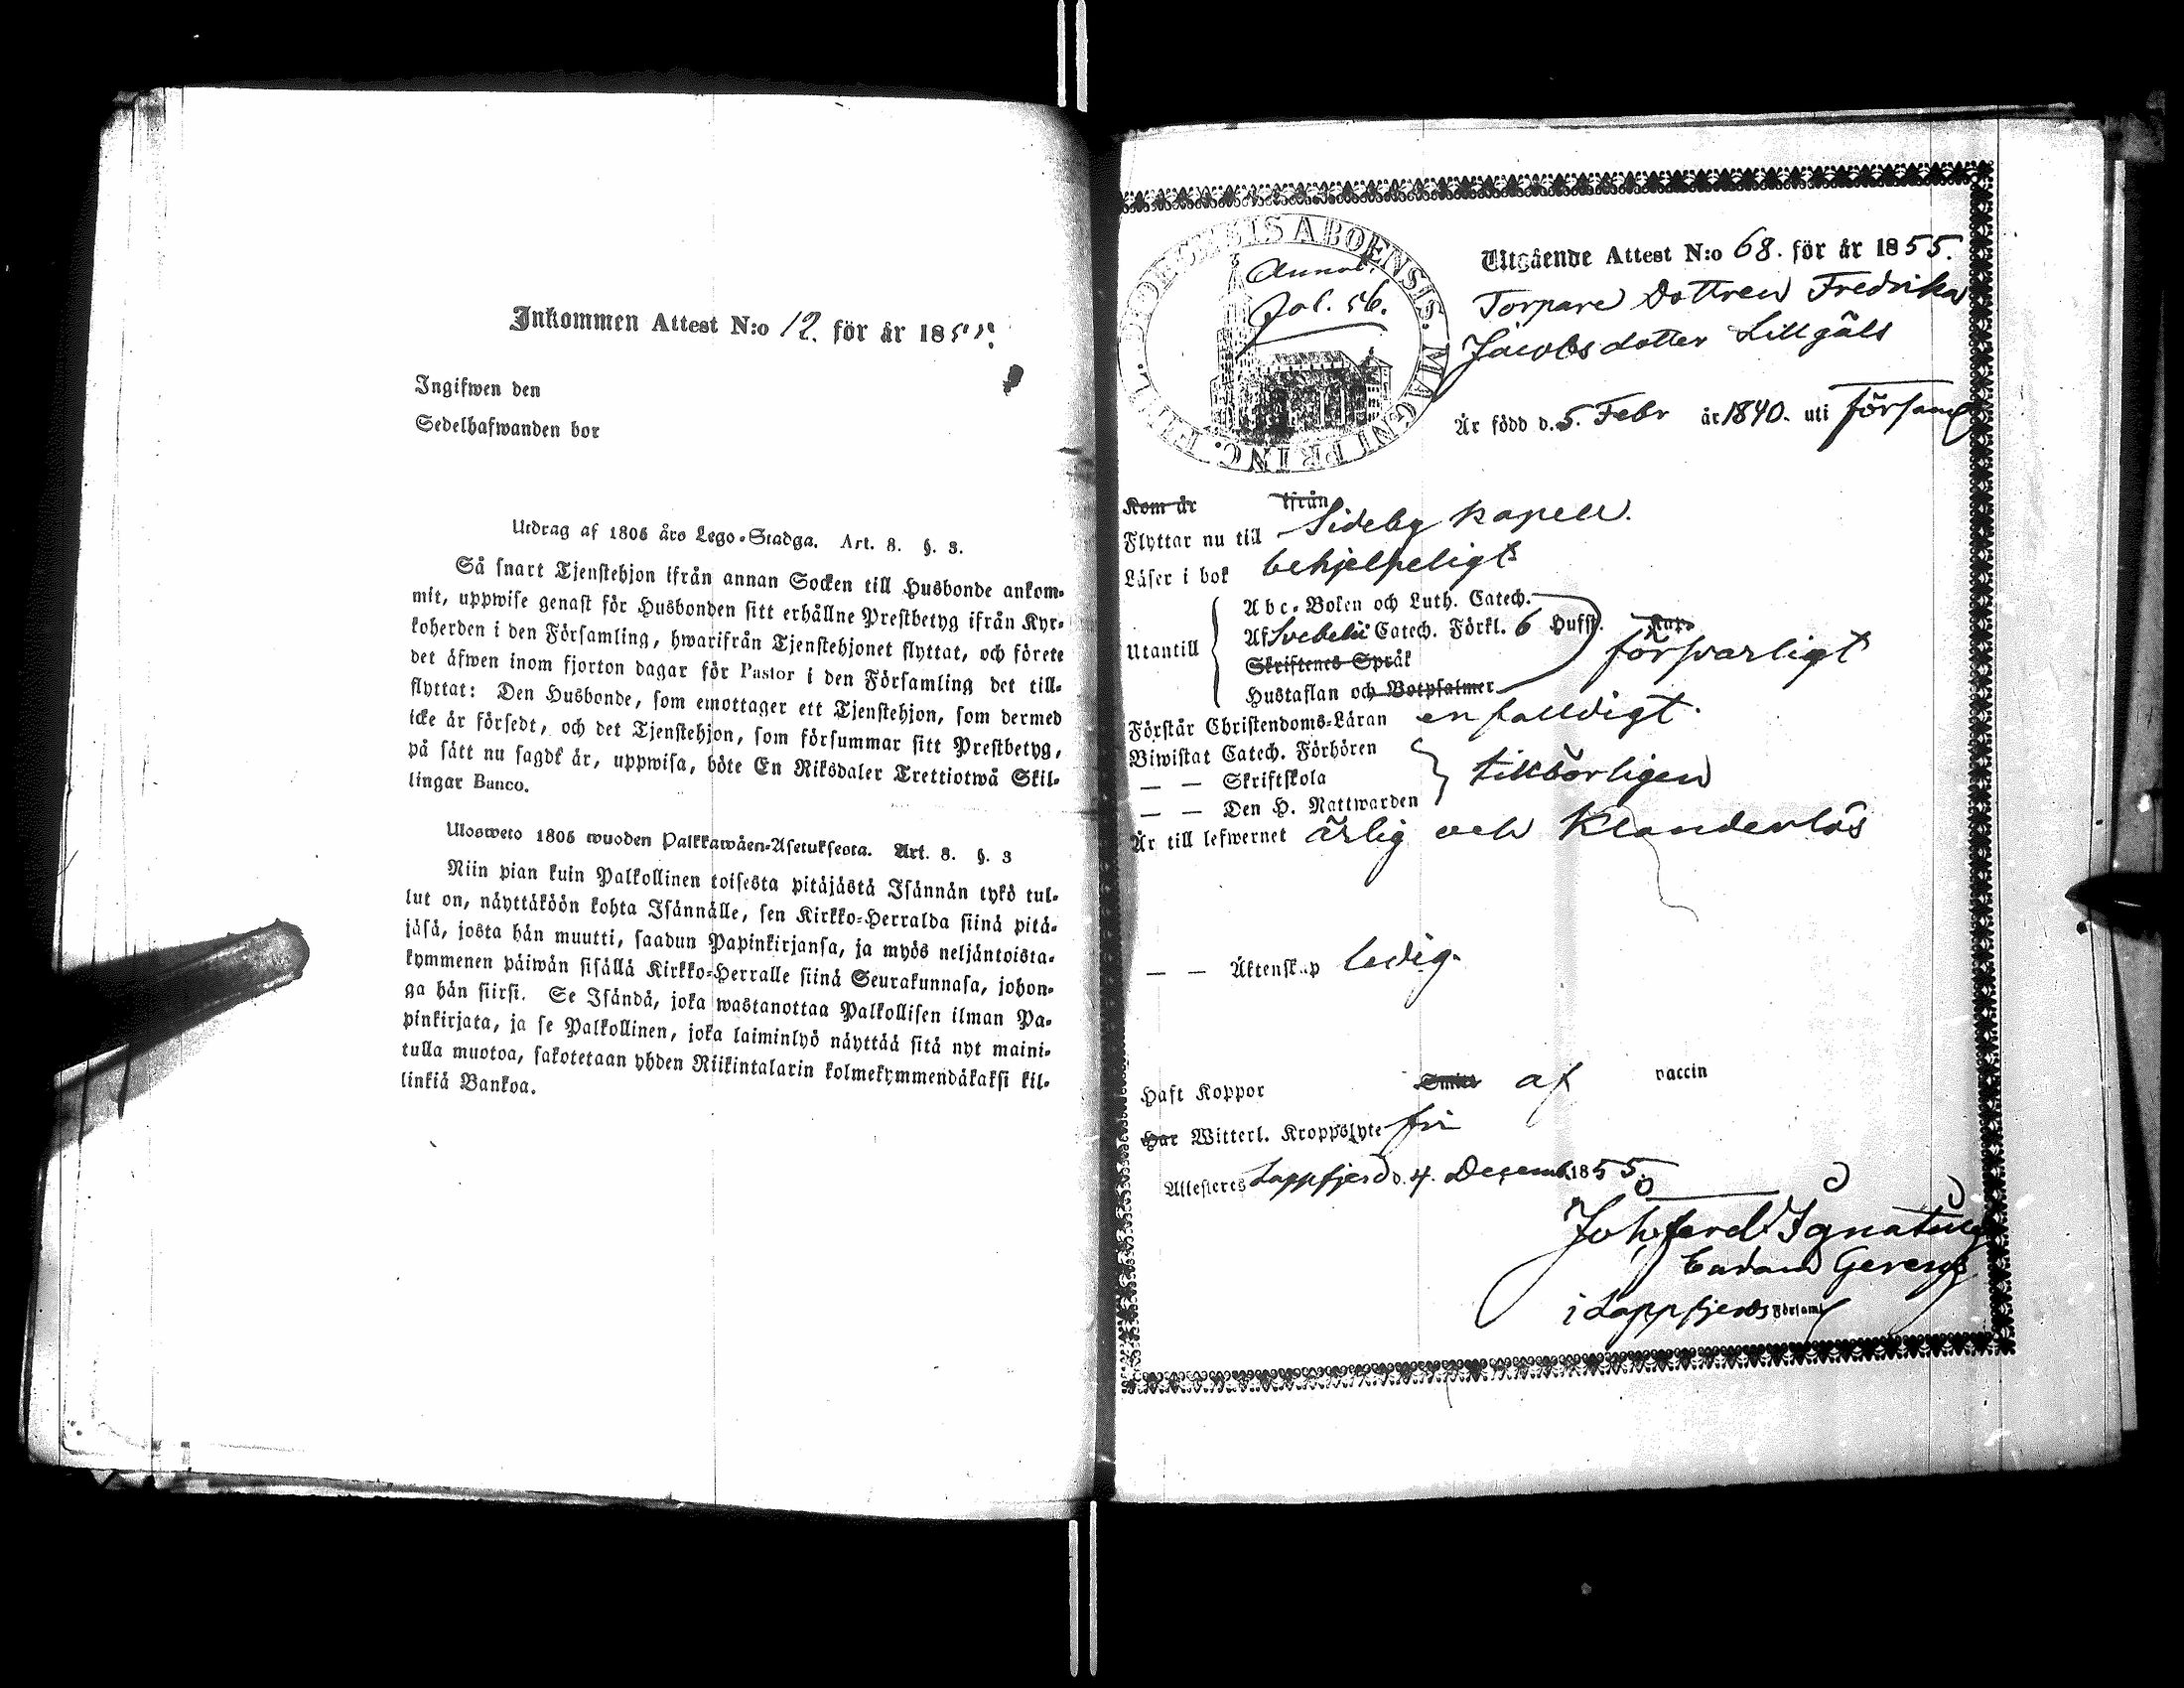 Inkommen Attest N:o 12. för år 1855.
Ingifwen den
Sedelhafwanden bor
Utdrag af 1805 års Lego-Stadga. Art. 8. §. 3.
Så snart Tjenstehjon ifrån annan Socken till Husbonde ankom-
mit, uppwise genast för Husbonden sitt erhållne Prestbetyg ifrån Kyr-
koherden i den Församling, hwarifrån Tjenstehjonet flyttat, och förete
det äfwen inom fjorton dagar för Pastor i den Församling det till-
flyttat: Den Husbonde, som emottager ett Tjenstehjon, som dermed
icke är försedt, och det Tjenstehjon, som försummar sitt Prestbetyg,
på sätt nu sagdt är, uppwisa, böte En Riksdaler Trettiotwå Skil-
lingar Banco.
Ulosweto 1805 wuoden Palkkawäen-Asetuksesta. Art. 8. §. 3
Niin pian kuin Palkollinen toisesta pitäjästä Isännän tykö tul-
lut on, näyttäköön kohta Isännälle, sen Kirkko-Herralda siinä pitä-
jäsä, josta hän muutti, saadun Papinkirjansa, ja myös neljäntoista-
kymmenen päiwän sisällä Kirkko-Herralle siinä Seurakunnasa, johon-
ga hän siirsi. Se Isändä, joka wastanottaa Palkollisen ilman Pa-
pinkirjata, ja se Palkollinen, joka laiminlyö näyttää sitä nyt maini-
tulla muotoa, sakotetaan yhden Riikintalarin kolmekymmendäkaksi kil-
linkiä Bankoa.
DIOECESIS ABOENSIS. MAGNI PRINC. FINL.
Annot.
Fol. 56.
Utgående Attest N:o 68. för år 1855.
Torpare Dottren Fredrika
Jacobsdotter Lillgäls
Är född d. 5. Febr år 1840. uti Församl
Kom år ifrån
Flyttar nu till Sideby Kapell.
Läser i bok behjelpeligt
Utantill
Abc-Boken och Luth. Catech.
Af Svebelii Catech. Förkl. 6 Hufst.
Skriftenes Språk
Hustaflan och Botpsalmer
försvarligt
Förstår Christendoms-Läran enfalldigt.
Biwistat Catech. Förhören
— — Skriftskola
— — Den H. Nattwarden
tillbörligen
Är till lefwernet ärlig och Klanderlös
— — Äktenskap ledig.
Haft Koppor af vaccin
Har Witterl. Kroppslyte fri
Attesteres Lappfjerd d. 4. Decemb. 1855.
Joh. Ferd. Ignatius
i Lappfjerds Församl